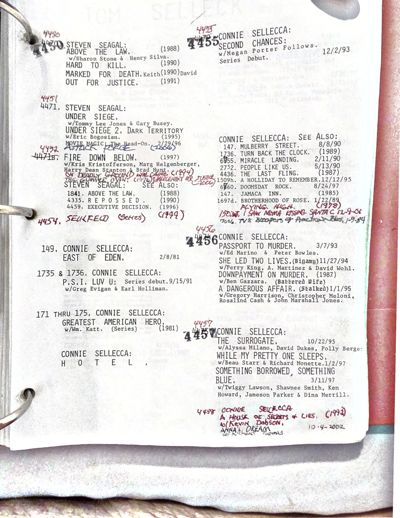 4450
4450 STEVEN SEAGAL:
ABOVE THE LAW. (1988)
w/Sharon Stone & Henry Silva.
HARD TO KILL. (1990)
MARKED FOR DEATH. Keith (1990) David
OUT FOR JUSTICE. (1991)
4451
4471. STEVEN SEAGAL:
UNDER SIEGE.
w/Tommy Lee Jones & Gary Busey.
UNDER SIEGE 2. DARK TERRITORY
w/Eric Bogosian. (1995)
MOVIE MAGIC: The Head-On. 2/29/96
4452
FIRE DOWN BELOW. (1997)
w/Kris Kristofferson, Marg Helgenberger,
Harry Dean Stanton &
STEVEN SEAGAL: SEE ALSO:
1841. ABOVE THE LAW. (1988)
4335. REPOSSED. (1990)
4459. EXECUTIVE DECISION. (1996)
4454. SELLECCA
149. CONNIE SELLECCA:
EAST OF EDEN. 2/8/81
1735 & 1736. CONNIE SELLECCA:
P.S.I. LUV U: Series debut. 9/15/91
w/Greg Evigan & Earl Holliman.
171 THRU 175. CONNIE SELLECCA:
GREATEST AMERICAN HERO.
w/Wm. Katt. (Series) (1981)
CONNIE SELLECCA:
H O T E L .
4455
4455 CONNIE SELLECCA:
SECOND CHANCES: 12/2/93
w/Megan Porter Follows.
Series Debut.
CONNIE SELLECCA: SEE ALSO:
147. MULBERRY STREET. 8/8/90
1736. TURN BACK THE CLOCK. (1989)
MIRACLE LANDING. 2/11/90
2772. PEOPLE LIKE US. 5/13/90
4436. THE LAST FLING. (1987)
1509m. A HOLLDAY TO REMEMBER. 12/12/95
DOOMSDAY ROCK. 8/24/97
147. JAMAICA INN. (1985)
1697d. BROTHERHOOD OF ROSE. 1/22/89
FLYING HIGH. (1978)
I SAW MOMMY KISSING SANTA C. 12-9-02
4456
4456 CONNIE SELLECCA:
PASSPORT TO MURDER. 3/7/93
w/Ed Marino & Peter Bowles.
SHE LED TWO LIVES. (Bigamy) 11/27/94
w/Perry King, A. Martinez & David Wohl.
DOWNPAYMENT ON MURDER. (1987)
w/Ben Gazzara. (Battered Wife)
A DANGEROUS AFFAIR. (Stalked) 1/1/95
w/Gregory Harrison, Christopher Meloni,
Rosalind Cash & John Marshall Jones.
4457
4457 CONNIE SELLECCA:
THE SURROGATE. 10/22/95
w/Alyssa Milano, David Dukes, Polly Bergen
WHILE MY PRETTY ONE SLEEPS.
w/Beau Starr & Richard Monette. 1/2/97
SOMETHING BORROWED, SOMETHING
BLUE. 3/11/97
w/Twiggy Lawson, Shawnee Smith, Ken
Howard, Jameson Parker & Dina Merrill.
4458 CONNIE SELLECCA
A HOUSE OF SECRETS & LIES. (1992)
w/KEVIN DOBSON.
ANNA'S DREAM 10-4-2002